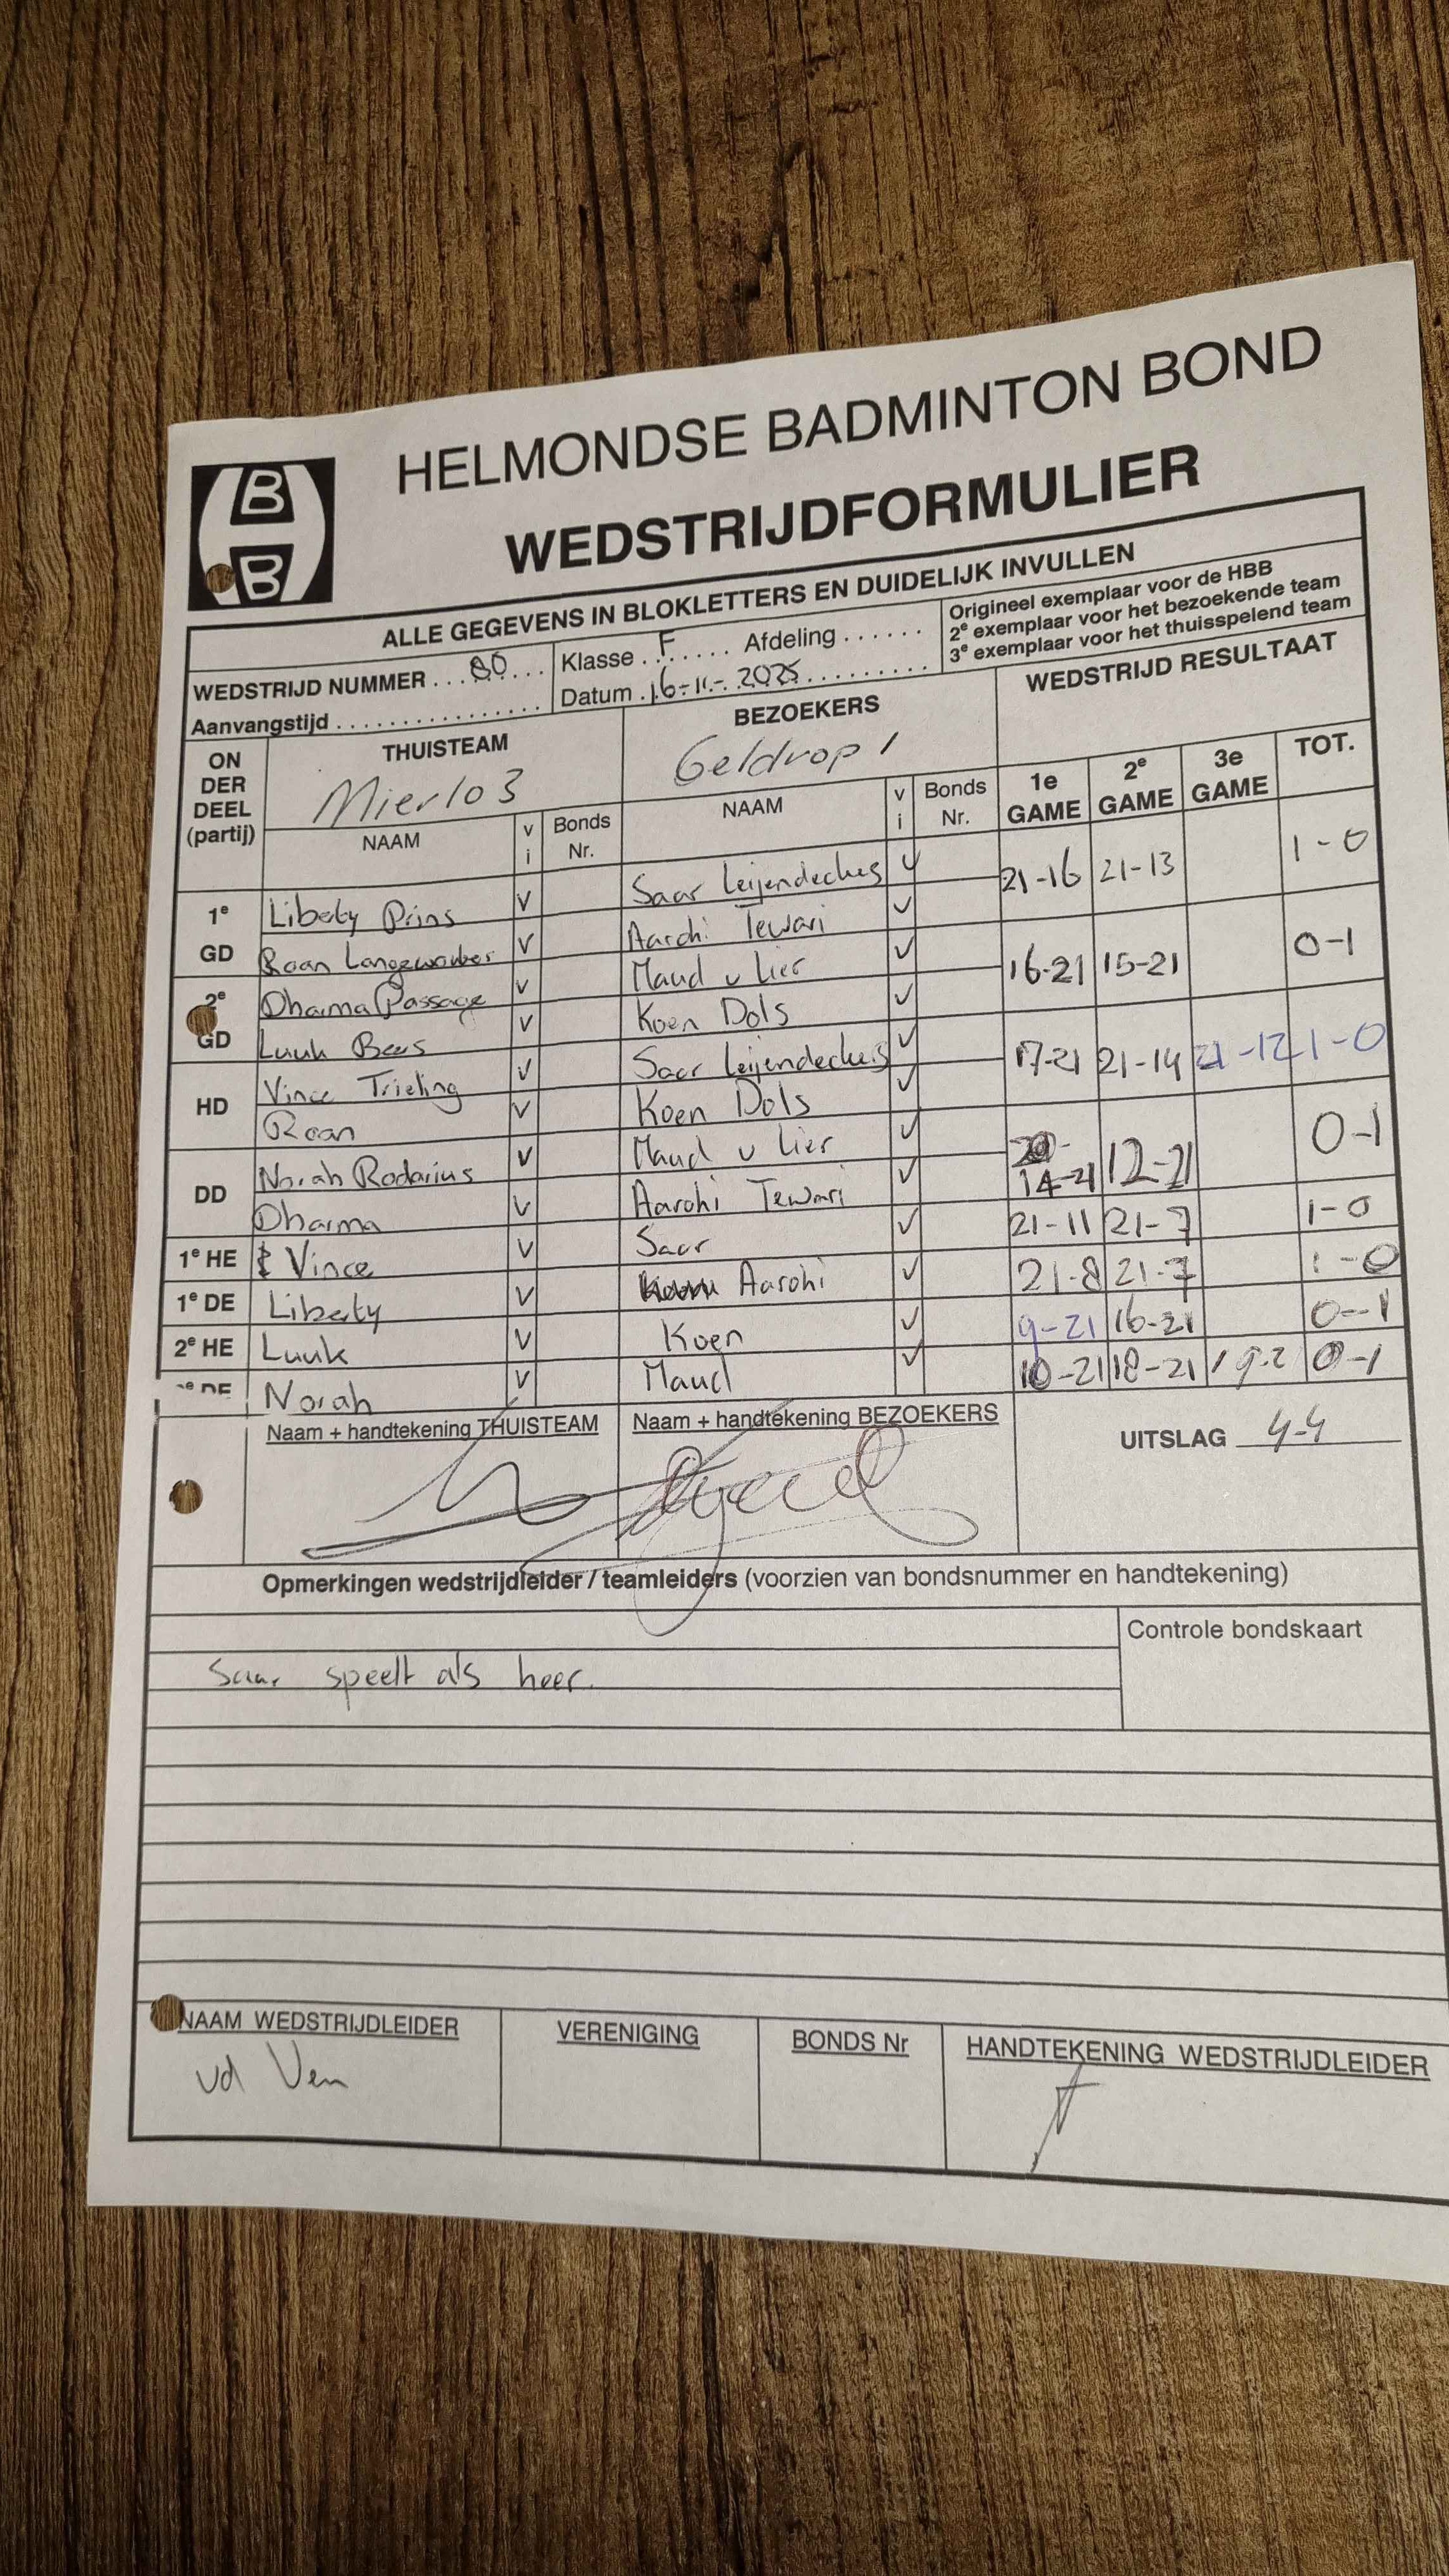 B
B
HELMONDSE BADMINTON BOND
WEDSTRIJDFORMULIER
ALLE GEGEVENS IN BLOKLETTERS EN DUIDELIJK INVULLEN
WEDSTRIJD NUMMER ... 80 ...
Klasse . F ...... Afdeling ......
Origineel exemplaar voor de HBB
2e exemplaar voor het bezoekende team
3e exemplaar voor het thuisspelend team
Aanvangstijd ................
Datum . 16-11-2025 ..........
ON DER DEEL (partij)
THUISTEAM
Mierlo 3
BEZOEKERS
Geldrop 1
WEDSTRIJD RESULTAAT
NAAM v i Bonds Nr. NAAM v i Bonds Nr. 1e GAME 2e GAME 3e GAME TOT.
1e GD Liberty Prins v Saar Leijendeckers v 21-16 21-13 1-0
v Aarohi Tewari v
2e GD Dharma Passage v Maud v Lier v 16-21 15-21 0-1
Luuk v Koen Dols v
HD Vince Trieling v Saar Leijendeckers v 17-21 21-14 21-12 1-0
Roan v Koen Dols v
DD Norah Rodarius v Maud v Lier v 14-21 12-21 0-1
Dharma v Aarohi Tewari v
1e HE Vince v Saar v 21-11 21-7 1-0
1e DE Liberty v Aarohi v 21-8 21-7 1-0
2e HE Luuk v Koen v 9-21 16-21 0-1
e DE Norah v Maud v 18-21 0-1
Naam + handtekening THUISTEAM
Naam + handtekening BEZOEKERS
UITSLAG 4-4
Opmerkingen wedstrijdleider / teamleiders (voorzien van bondsnummer en handtekening)
Controle bondskaart
Saar speelt als heer.
NAAM WEDSTRIJDLEIDER
VERENIGING
BONDS Nr
HANDTEKENING WEDSTRIJDLEIDER
vd Ven